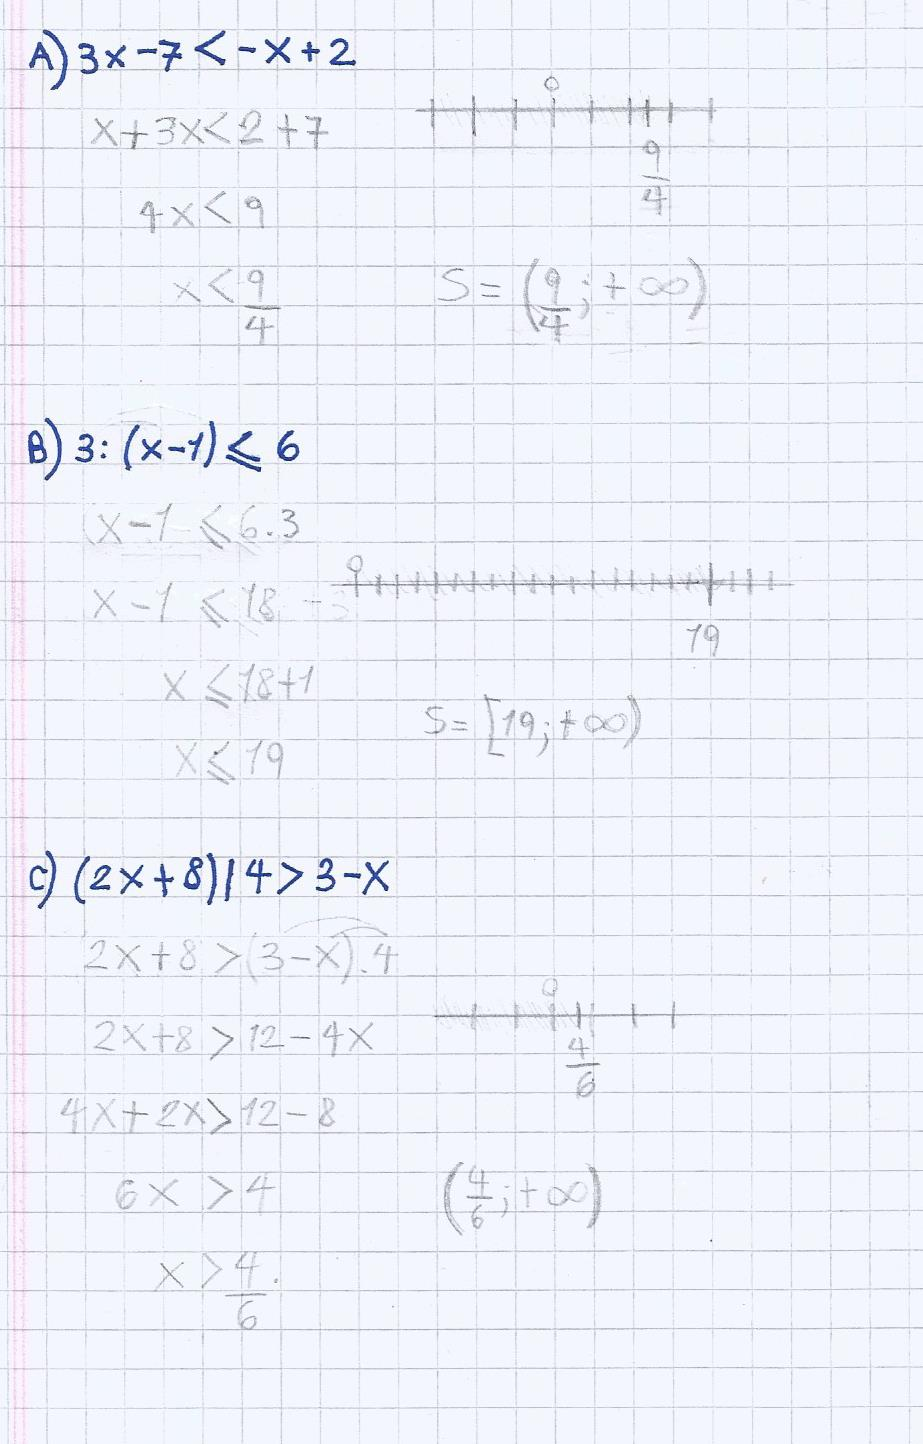 A) 3x-7<-x+2
x+3x<2+7
4x<9
x<9/4
0
9/4
S=(9/4;+∞)
B) 3:(x-1)⩽6
x-1⩽6.3
x-1⩽18
x⩽18+1
x⩽19
0
19
S=[19;+∞)
C) (2x+8)|4>3-x
2x+8>(3-x).4
2x+8>12-4x
4x+2x>12-8
6x>4
x>4/6
0
4/6
(4/6;+∞)